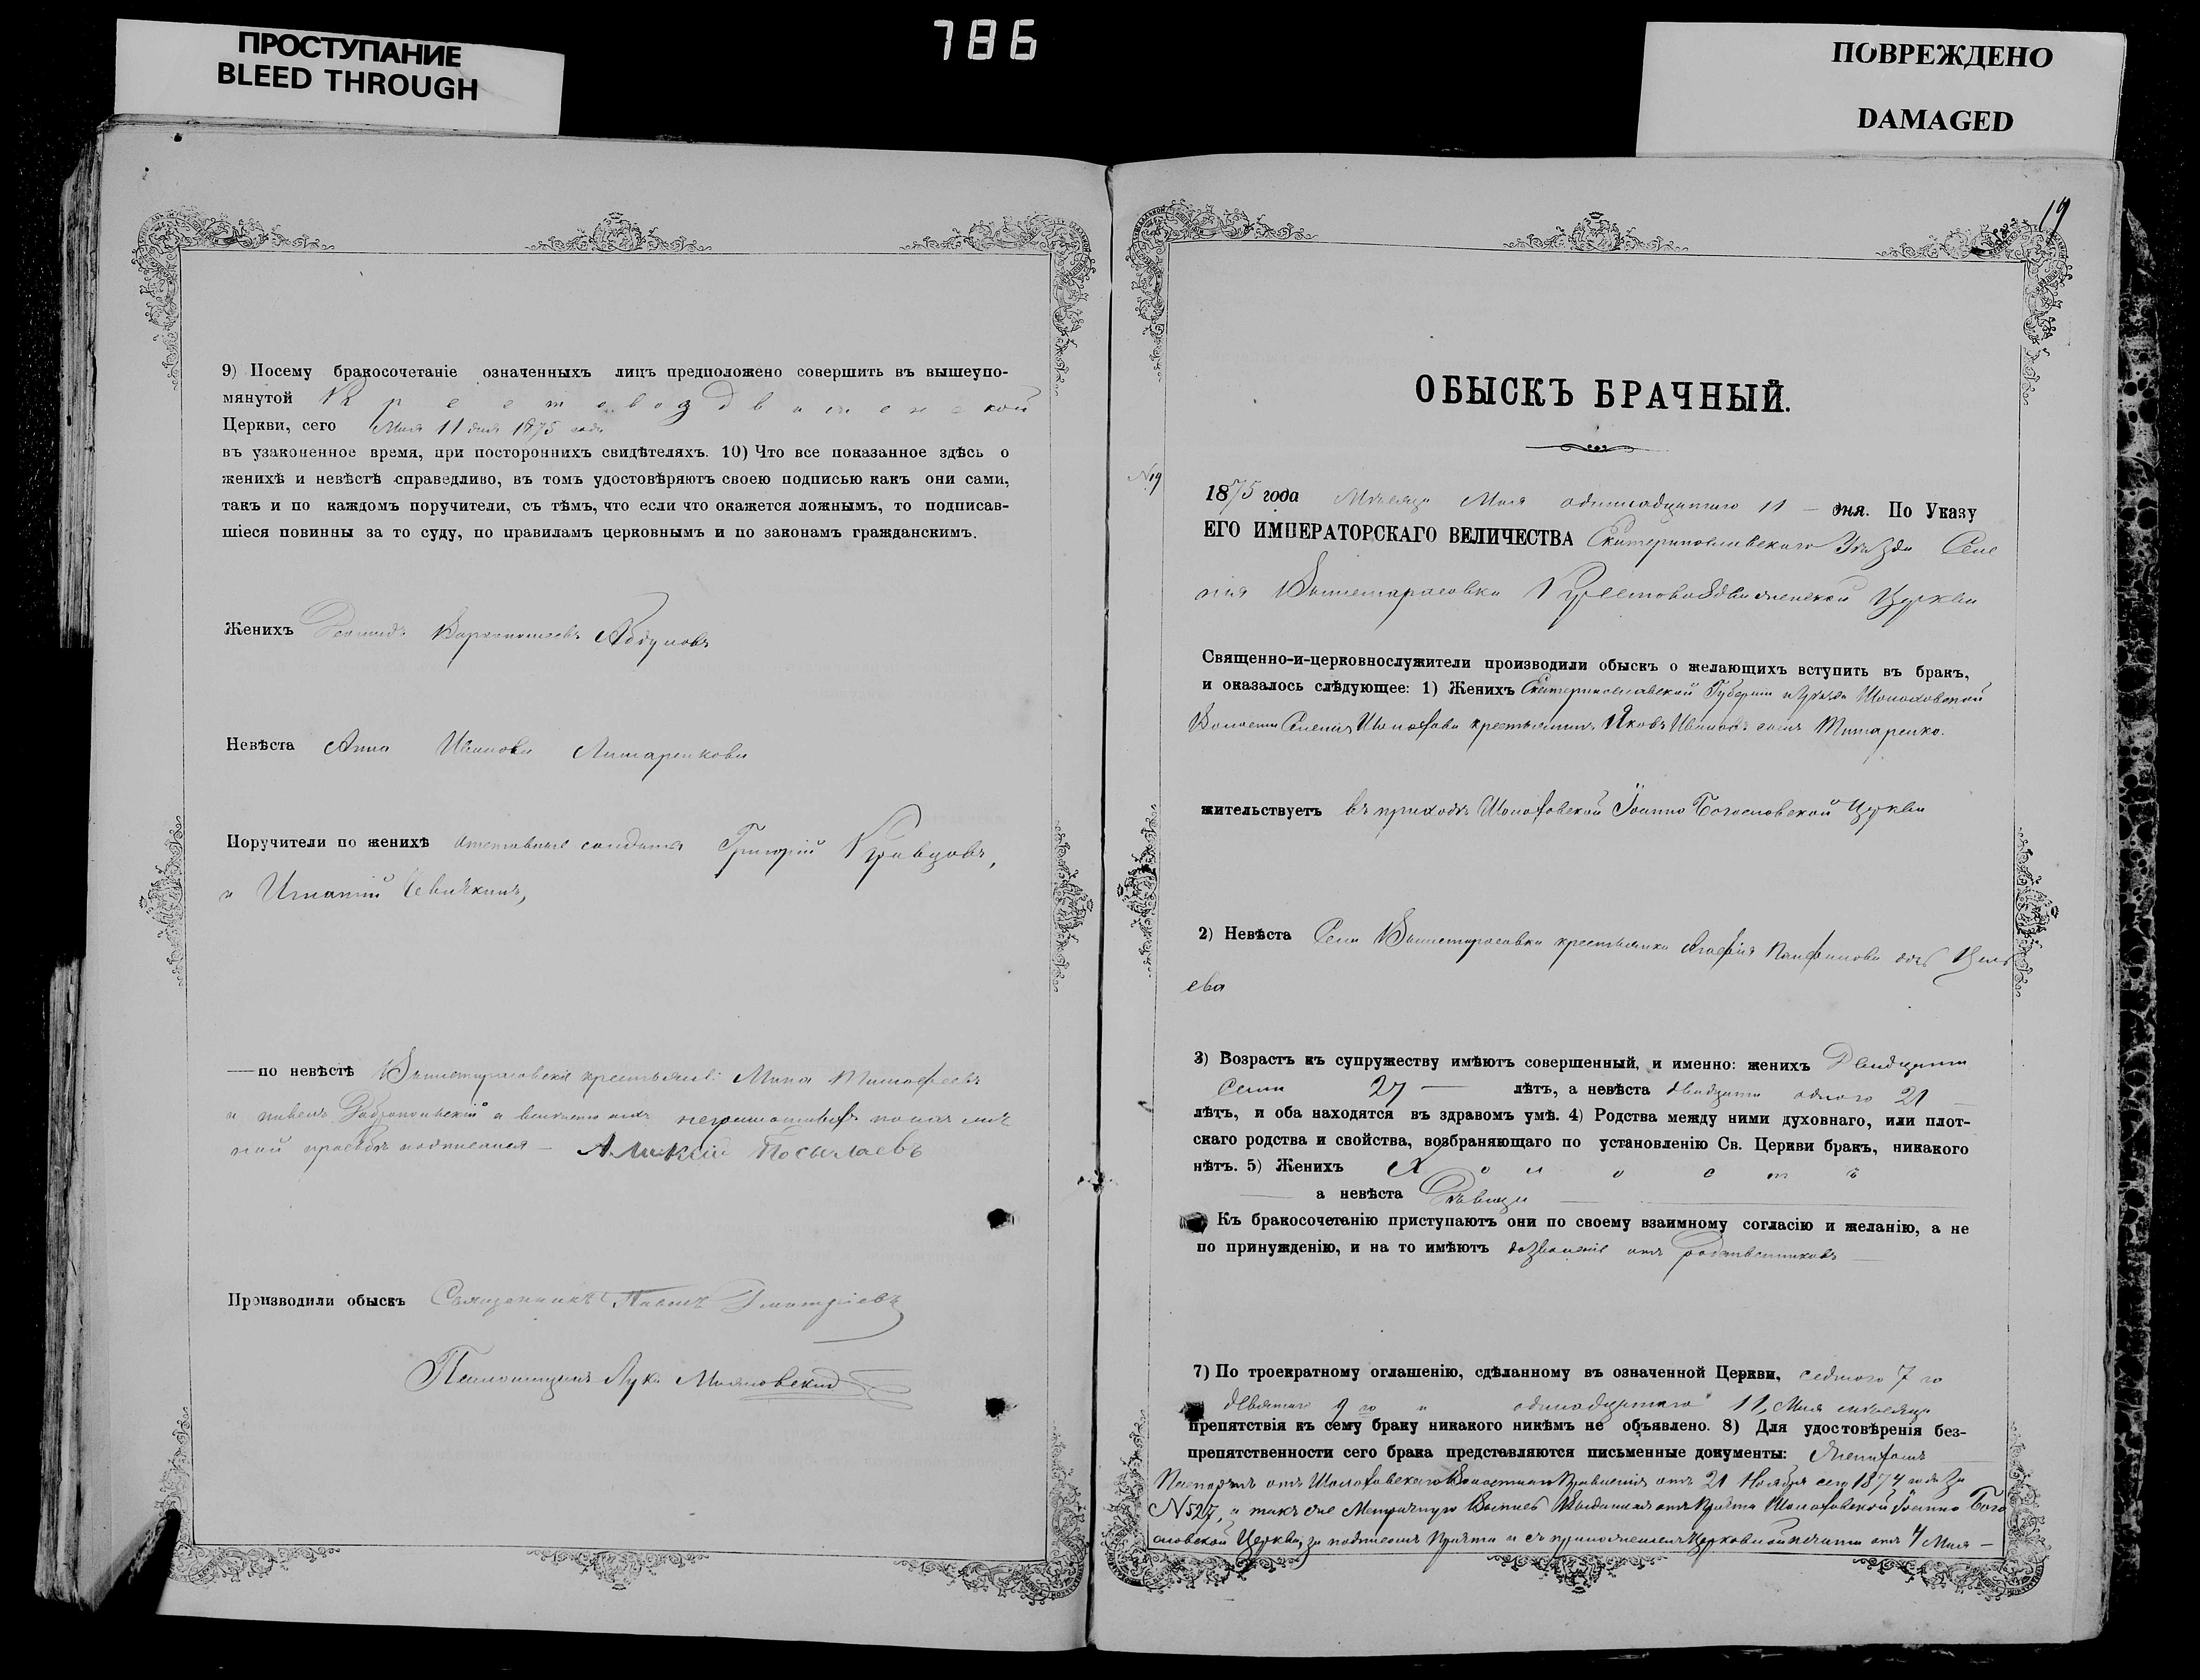 ПРОСТУПАНИЕ
BLEED THROUGH
786
ПОВРЕЖДЕНО
DAMAGED
9) Посему бракосочетаніе означенныхъ лицъ предположено совершить въ вышеупо-
мянутой Крестовоздвиженской
Церкви, сего Мая 11 дня 1875 года
въ узаконенное время, при постороннихъ свидѣтеляхъ. 10) Что все показанное здѣсь о
женихѣ и невѣстѣ справедливо, въ томъ удостовѣряютъ своею подписью какъ они сами,
такъ и по каждомъ поручители, съ тѣмъ, что если что окажется ложнымъ, то подписав-
шіеся повинны за то суду, по правиламъ церковнымъ и по законамъ гражданскимъ.
Женихъ
Невѣста Анна Иванова
Поручители по женихѣ отставные солдаты Григорій Кравцовъ,
и Игнатій
—по невѣстѣ Вышетарасовскіе крестьяне:
и неграмотныхъ
подписался — Аликсій Посылаевъ
Производили обыскъ Священникъ Павелъ Дмитріевъ
Пономарь Лука
19
ОБЫСКЪ БРАЧНЫЙ.
№19
1875 года Мѣсяца Мая одинадцатаго 11 — дня. По Указу
ЕГО ИМПЕРАТОРСКАГО ВЕЛИЧЕСТВА Екатеринославскаго Уѣзда Селе
нія Вышетарасовки Крестовоздвиженской Церкви
Священно-и-церковнослужители производили обыскъ о желающихъ вступить въ бракъ,
и оказалось слѣдующее: 1) Женихъ Екатеринославской Губерніи и Уѣзда Шолоховской
Волости Селенія Шолохова крестьянинъ Яковъ Ивановъ сынъ Титаренко.
жительствуетъ въ приходѣ Шолоховской Іоанно Богословской Церкви
2) Невѣста Села Вышетарасовки крестьянка Агафія дочь
ева
3) Возрастъ къ супружеству имѣютъ совершенный, и именно: женихъ Двадцати
семи 27 — лѣтъ, а невѣста двадцати одного 21 —
лѣтъ, и оба находятся въ здравомъ умѣ. 4) Родства между ними духовнаго, или плот-
скаго родства и свойства, возбраняющаго по установленію Св. Церкви бракъ, никакого
нѣтъ. 5) Женихъ Холостъ
— а невѣста Дѣвица —
Къ бракосочетанію приступаютъ они по своему взаимному согласію и желанію, а не
по принужденію, и на то имѣютъ дозволеніе отъ родственниковъ —
7) По троекратному оглашенію, сдѣланному въ означенной Церкви, седмого 7 го
девятаго 9 го и одинадцатаго 11, Мая мѣсяца
препятствія къ сему браку никакого никѣмъ не объявлено. 8) Для удостовѣренія без-
препятственности сего брака представляются письменные документы:
отъ Шолоховскаго Волостнаго Правленія отъ 21 Ноября сего 1874 года за
№527, и такъ же Метричную Выпись Выданную отъ Причта Шолоховской Іоанно Бого
словской Церкви, за подписомъ Причта и съ приложеніемъ Церковной печати отъ 4 Мая —